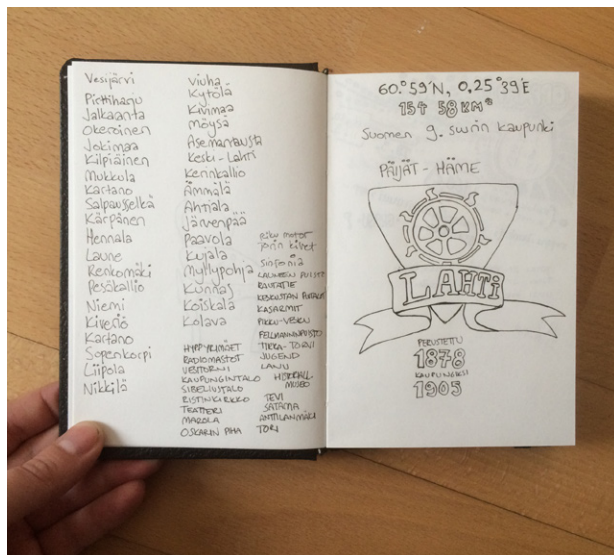 Vesijärvi
Pirttiharju
Jalkaranta
Okeroinen
Jokimaa
Kilpiäinen
Mukkula
Kartano
Salpausselkä
Kärpänen
Hennala
Laune
Renkomäki
Pesäkallio
Niemi
Kiveriö
Kartano
Sopenkorpi
Liipola
Nikkilä
viuha
Kytölä
Kivimaa
Möysä
Asemantausta
Keski-Lahti
Kerinkallio
Ämmälä
Ahtiala
Järvenpää
Paavola
Kujala
Myllypohja
Kunnas
Koiskala
Kolava
HYPPYRIMÄET
RADIOMASTOT
VESITORNI
KAUPUNGINTALO
SIBELIUSTALO
RISTINKIRKKO
TEATTERI
MAROLA
OSKARIN PIHA
jorin kivet
sinfonia
LAUNEEN PUISTO
RAUTATIE
KASARMIT
PIKKU-VESKU
FELLMANNINPUISTO
JUGEND
LANU
MUSEO
TEVI
SATAMA
ANTTILANMÄKI
TORI
60.°59'N, 0,25°39'E
154 58 KM²
Suomen 9. suurin kaupunki
PÄIJÄT-HÄME
LAHTI
PERUSTETTU
1878
KAUPUNGIKSI
1905